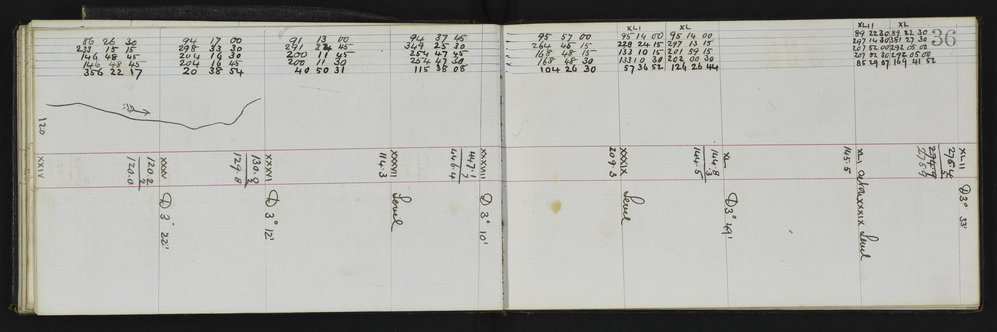 XLI XL
XLII XL
36
86 26 30
233 15 15
146 48 45
146 48 45
356 22 17
94 17 00
298 33 30
204 16 30
204 16 45
20 38 54
91 13 00
291 24 45
200 11 45
200 11 30
40 50 31
94 37 45
349 25 30
254 47 45
254 47 30
115 38 08
95 57 00
264 46 15
168 48 15
168 48 30
104 26 30
95 14 00 95 14 00
228 24 15 297 13 15
133 10 15 201 59 15
133 10 30 202 00 30
57 36 52 126 26 44
89 22 30 89 22 30
297 14 30 381 27 30
207 52 00 292 05 00
207 51 30 292 05 00
85 29 07 169 41 52
120
XXIV
XXXV
120.2
120.0
D 3° 22'
XXXVI
130.0
129.8
D 3° 12'
XXXVII
114.3
Level
XXXVIII
447.7
446.4
D 3° 10'
XXXIX
209.3
Level
XL
144.8
144.5
D 3° 49'
XLI
145.5
XXXIX Level
XLII
D 3° 33'